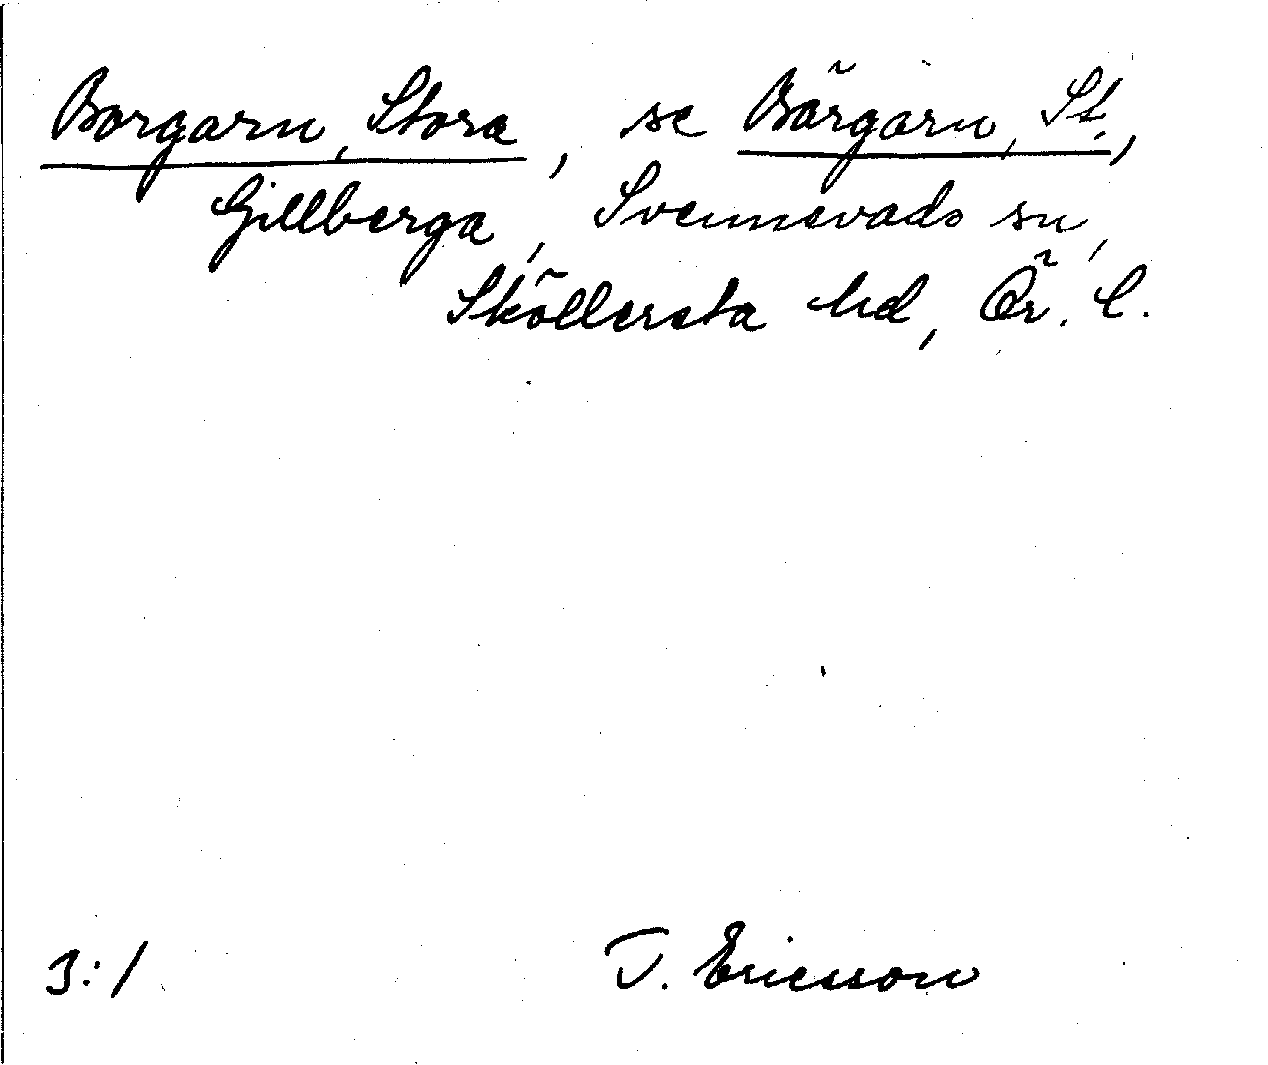 Borgarn, Stora, se Börgarn, St.,
Gillberga, Svennevads sn,
Sköllersta hd, Ör. l.
3:1 T. Ericsson